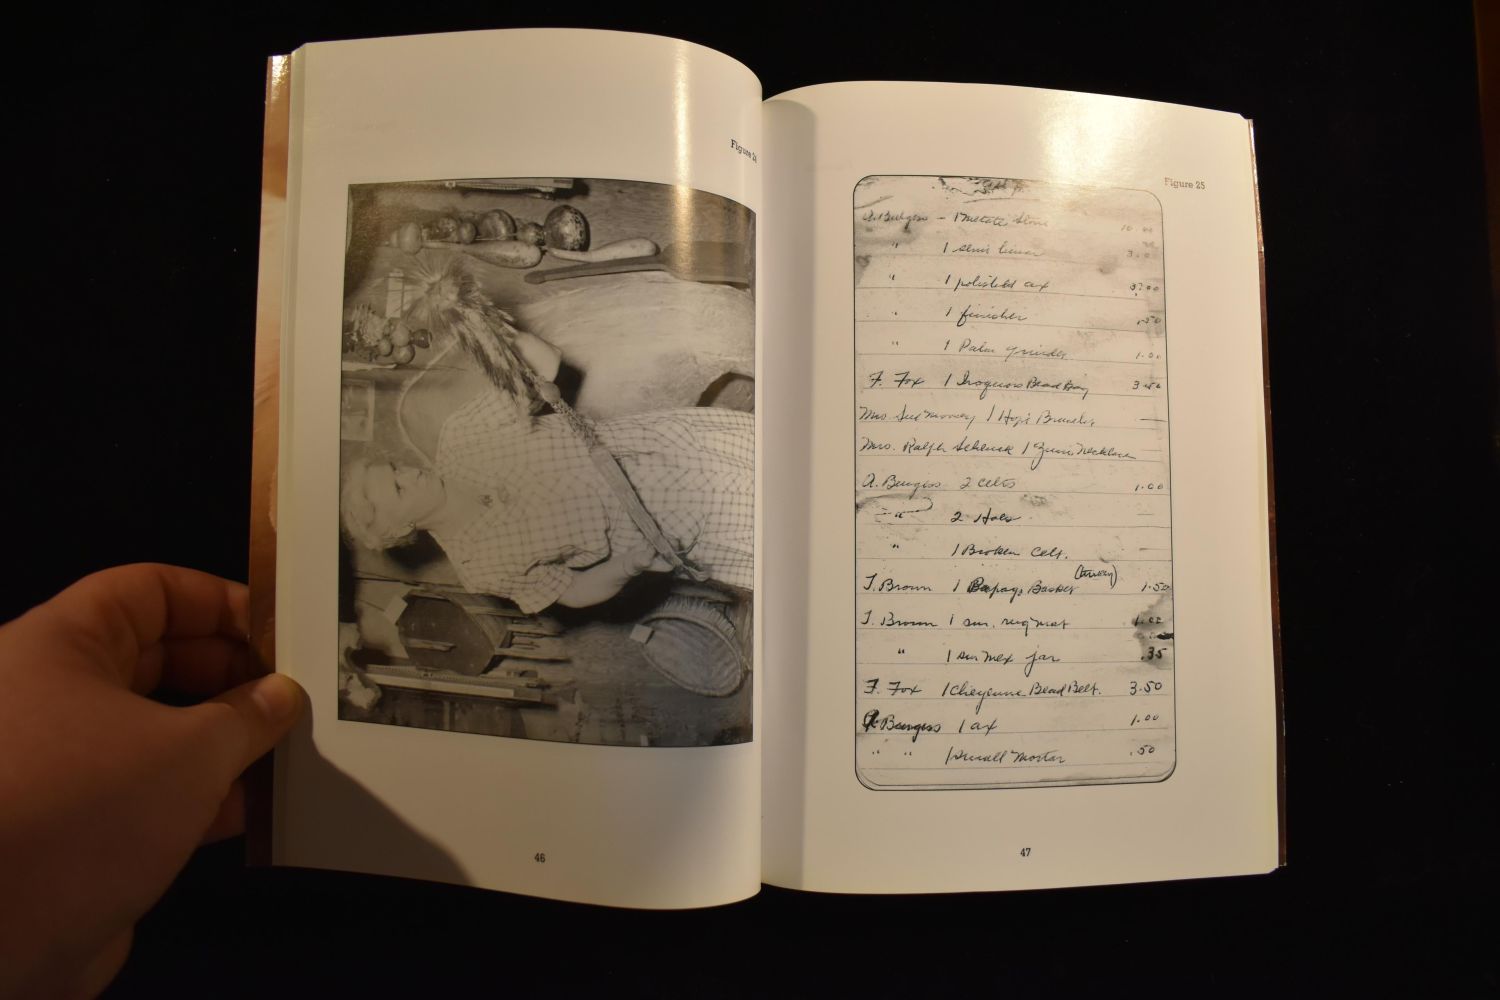 Figure 24
46
Figure 25
A. Burgess - 1 Metate Stone 10.00
" 1 semi lunar 3.0
" 1 polished ax 3.00
" 1 finisher .50
" 1 Palm grinder 1.00
F. Fox 1 Iroquois Bead Bag 3.50
Mrs 1 Hopi Bracelet —
Mrs. Ralph Schenck 1 Zuni Necklace
A. Burgess 2 celts 1.00
" 2 Hoes —
" 1 Broken Celt. —
T. Brown 1 Papago Basket 1.50
T. Brown 1 sm. rug mat 1.00
" 1 sm Mex jar .35
F. Fox 1 Cheyenne Bead Belt. 3.50
A. Burgess 1 ax 1.00
" " 1 Small Mortar .50
47